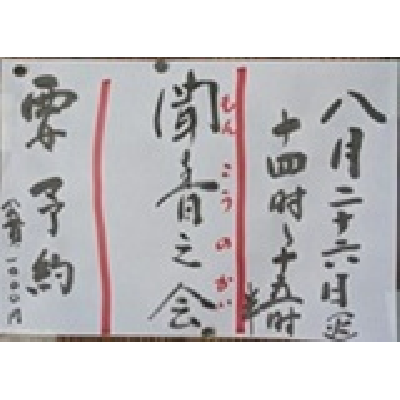 八月二十六日
十四时〜十五时半
聞香之会
もんこうのかい
要予約
会費一〇〇〇円